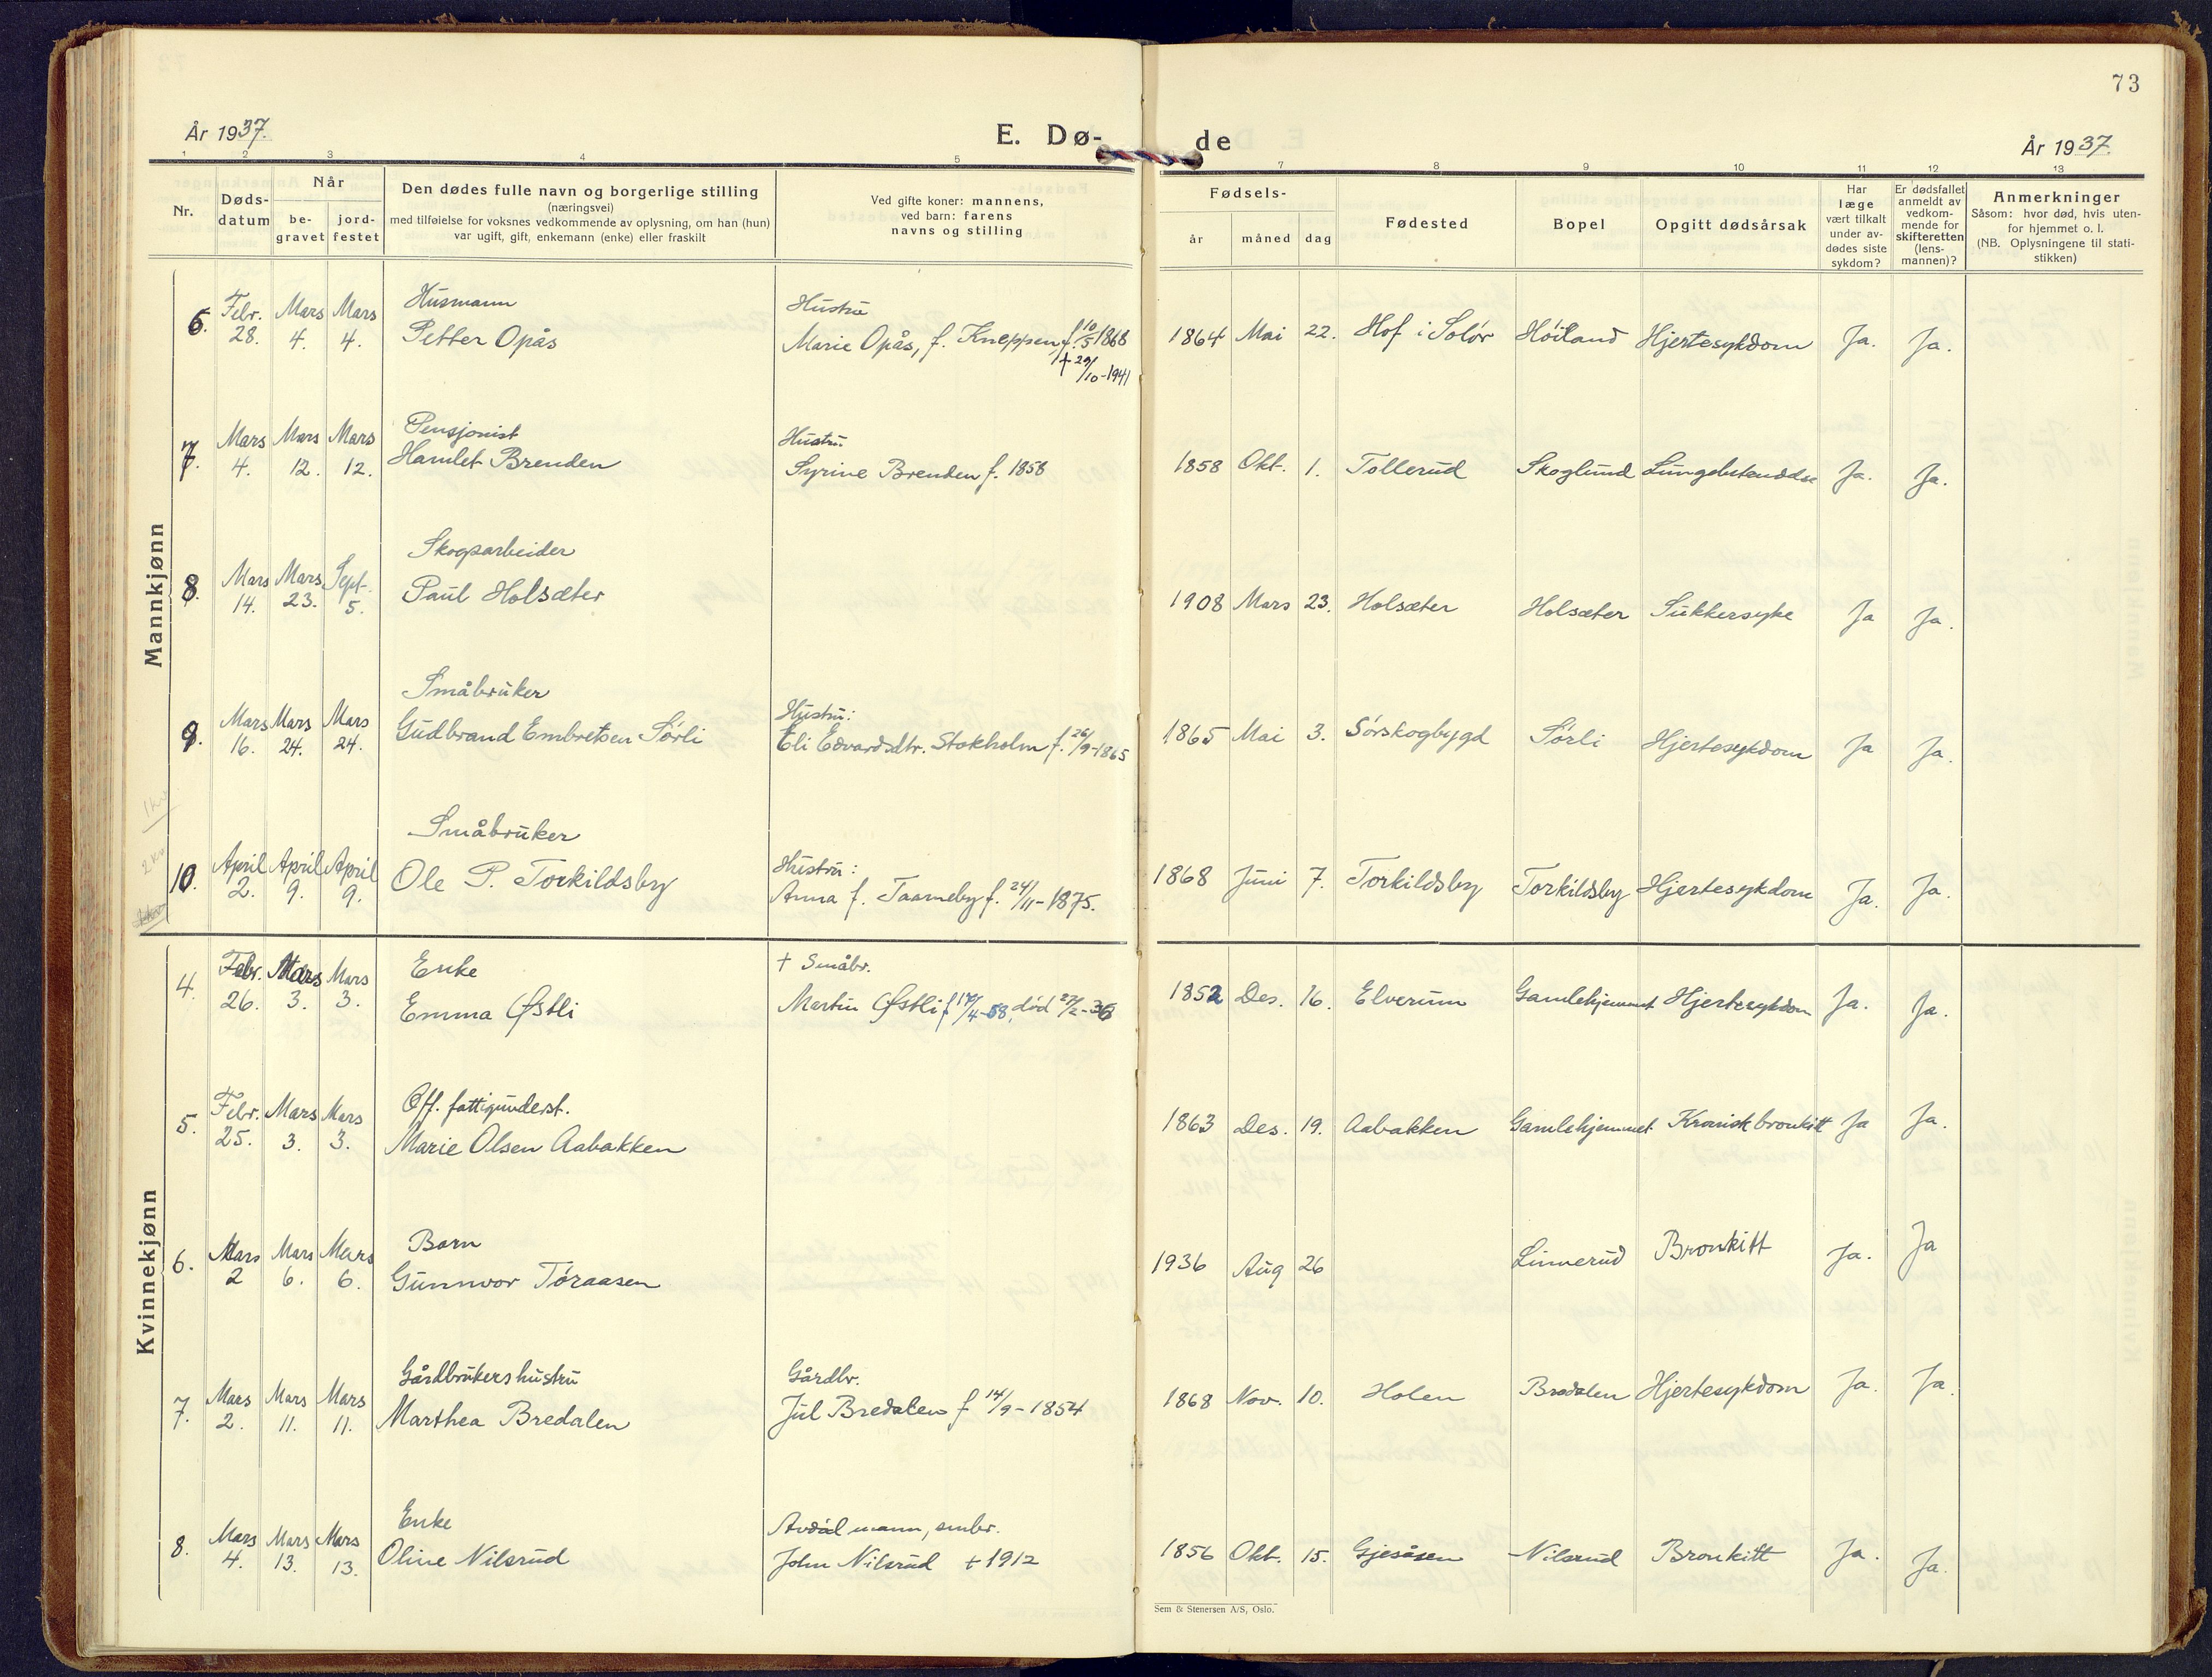 73
År 1937.
E. Dø-
de
År 1937.
1 2 3 4 5 7 8 9 10 11 12 13
Nr.
Døds-
datum
Når
be-
gravet
jord-
festet
Den dødes fulle navn og borgerlige stilling
(næringsvei)
med tilføielse for voksnes vedkommende av oplysning, om han (hun)
var ugift, gift, enkemann (enke) eller fraskilt
Ved gifte koner: mannens,
ved barn: farens
navns og stilling
Fødsels-
år måned dag
Fødested
Bopel
Opgitt dødsårsak
Har
læge
vært tilkalt
under av-
dødes siste
sykdom?
Er dødsfallet
anmeldt av
vedkom-
mende for
skifteretten
(lens-
mannen)?
Anmerkninger
Såsom: hvor død, hvis uten-
for hjemmet o. l.
(NB. Oplysningene til stati-
stikken)
Mannkjønn
Husmann Hustru
6. Febr. 28. Mars 4. Mars 4. Petter Opås Marie Opås, f. Kneppen f. 10/5 1868 1864 Mai 22. Hof i Solør Høiland Hjertesykdom Ja. Ja.
+ 29/10-1941
Pensjonist Hustru
7. Mars 4. Mars 12. Mars 12. Hamlet Brenden Syrine Brenden f. 1858 1858 Okt. 1. Tollerud Skoglund Lungebetendelse Ja. Ja.
Skogsarbeider
8. Mars 14. Mars 23. Sept. 5. Paul Holsæter 1908 Mars 23. Holsæter Holsæter Sukkersyke Ja Ja.
Småbruker Hustru:
9. Mars 16. Mars 24. Mars 24. Gudbrand Embretsen Sørli Eli Edvardsdtr. Stokholm f. 26/9-1865 1865 Mai 3. Sørskogbygd Sørli Hjertesykdom Ja Ja.
1 kv
2 kv
Småbruker Hustru:
10. April 2. April 9. April 9. Ole P. Torkildsby Anna f. Taarneby f. 24/11-1875. 1868 Juni 7. Torkildsby Torkildsby Hjertesykdom Ja. Ja.
Kvinnekjønn
Enke + Småbr.
4. Febr. 26. Mars 3. Mars 3. Emma Østli Martin Østli f. 17/4-58, død 27/2-36 1852 Des. 16. Elverum Gamlehjemmet Hjertesykdom Ja. Ja.
Off. fattigunderst.
5. Febr. 25. Mars 3. Mars 3. Marie Olsen Aabakken 1863 Des. 19. Aabakken Gamlehjemmet Kronisk bronkitt Ja Ja.
Barn
6. Mars 2 Mars 6. Mars 6. Gunnvor Tøraasen 1936 Aug 26 Linnerud Bronkitt Ja. Ja
Gårdbrukershustru Gårdbr.
7. Mars 2. Mars 11. Mars 11. Marthea Bredalen Jul Bredalen f 14/9-1854 1868 Nov. 10. Holen Bredalen Hjertesykdom Ja. Ja.
Enke Avdød mann, småbr.
8. Mars 4. Mars 13. Mars 13. Oline Nilsrud John Nilsrud + 1912 1856 Okt. 15. Gjesåsen Nilsrud Bronkitt Ja. Ja.
Sem & Stenersen A/S, Oslo.